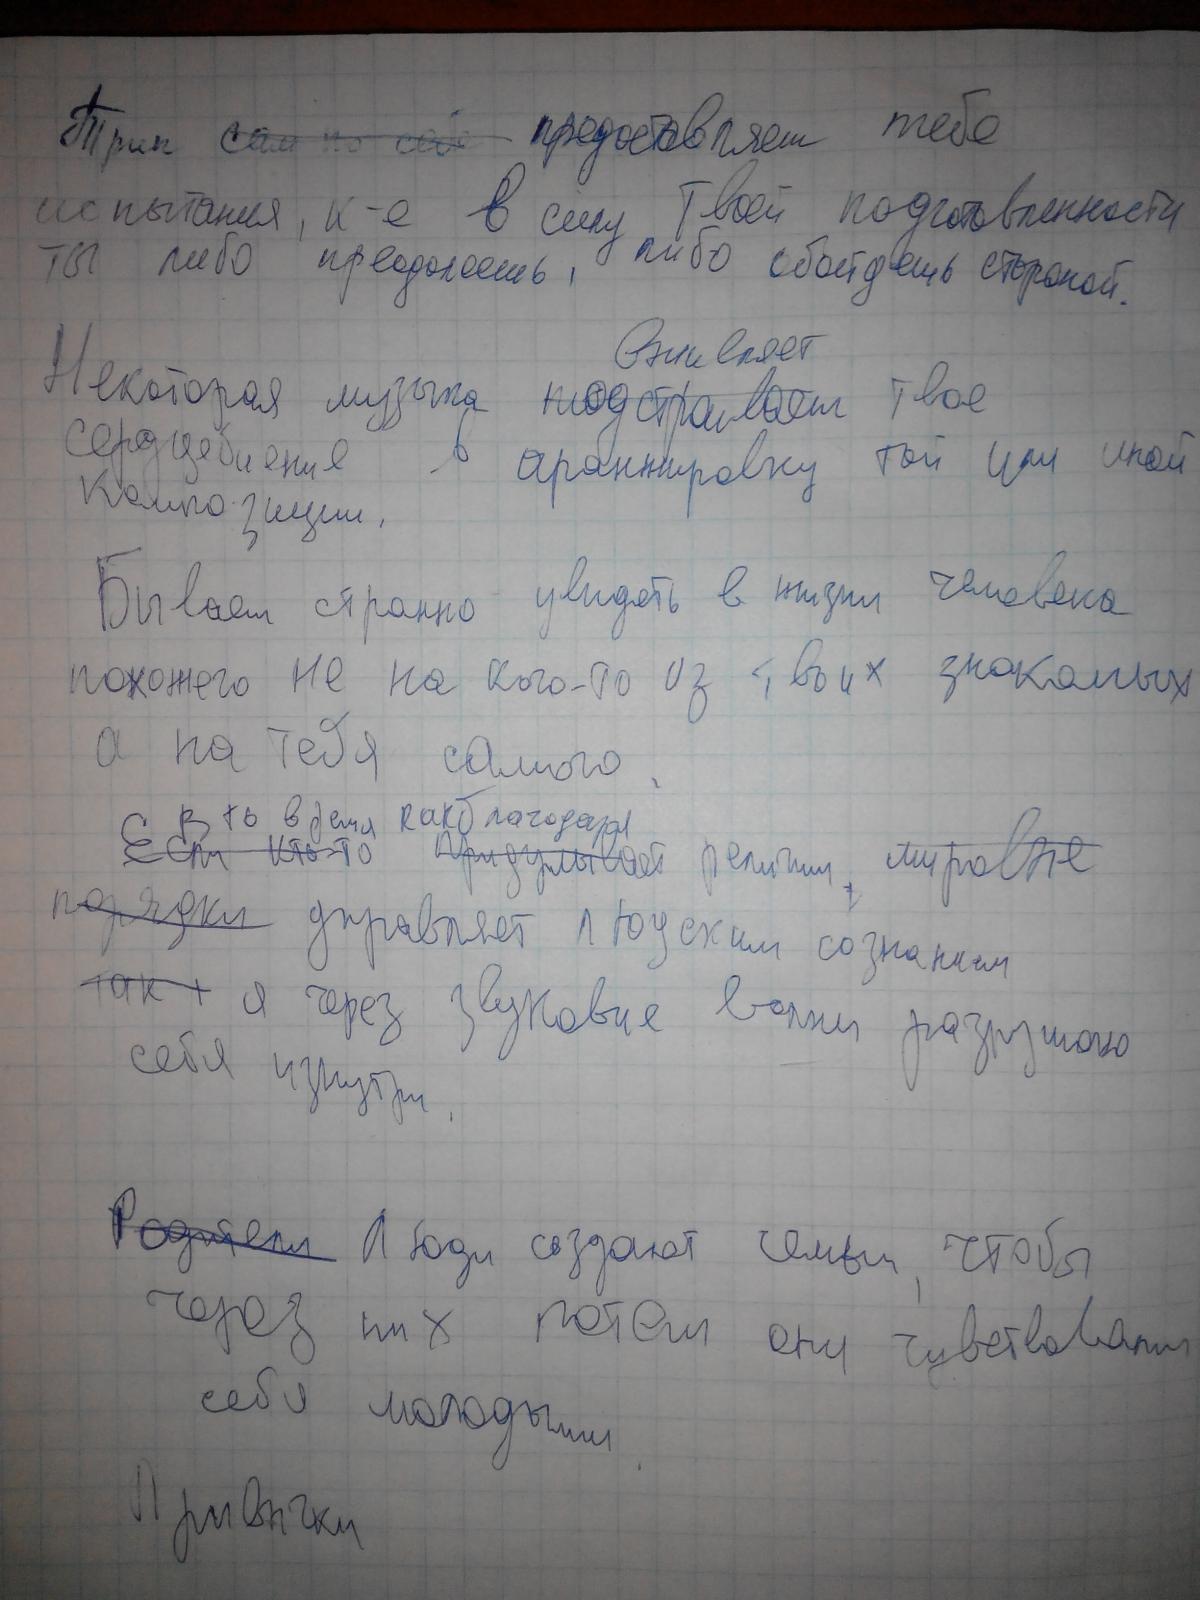 Трип сам по себе предоставляет тебе
испытания, к-е в силу твоей подготовленности
ты либо преодолеешь, либо обойдешь стороной.
вживляет
Некоторая музыка подстраивает твое
сердцебиение в аранжировку той или иной
композиции.
Бывает странно увидеть в жизни человека
похожего не на кого-то из твоих знакомых
а на тебя самого.
В то время как благодаря
Если кто-то придумывает религии, мировые
порядки управляет людским сознанием
так и я через звуковые волны разрушаю
себя изнутри.
Родители Люди создают семьи, чтобы
через них потом они чувствовали
себя молодыми.
Привычки